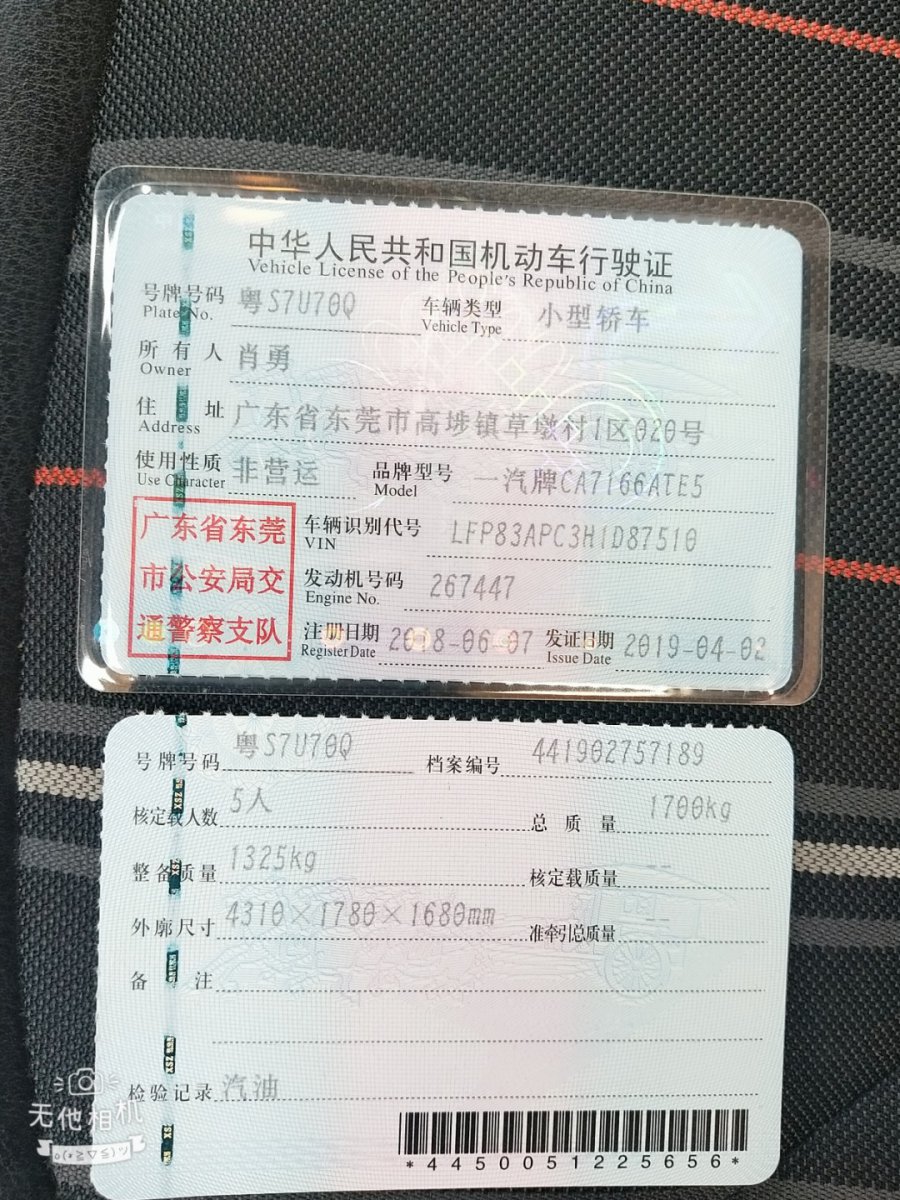 中华人民共和国机动车行驶证
Vehicle License of the People's Republic of China
号牌号码 粤S7U70Q 车辆类型 小型轿车
Plate No. Vehicle Type
所有人 肖勇
Owner
住址 广东省东莞市高埗镇草墩村1区020号
Address
使用性质 非营运 品牌型号 一汽牌CA7166ATE5
Use Character Model
广东省东莞
市公安局交
通警察支队
车辆识别代号 LFP83APC3H1D87510
VIN
发动机号码 267447
Engine No.
注册日期 2018-06-07 发证日期 2019-04-02
Register Date Issue Date
号牌号码 粤S7U70Q 档案编号 441902757189
核定载人数 5人 总质量 1700kg
整备质量 1325kg 核定载质量 --
外廓尺寸 4310×1780×1680mm 准牵引总质量 --
备注
检验记录 汽油
*4450051225656*
无他相机